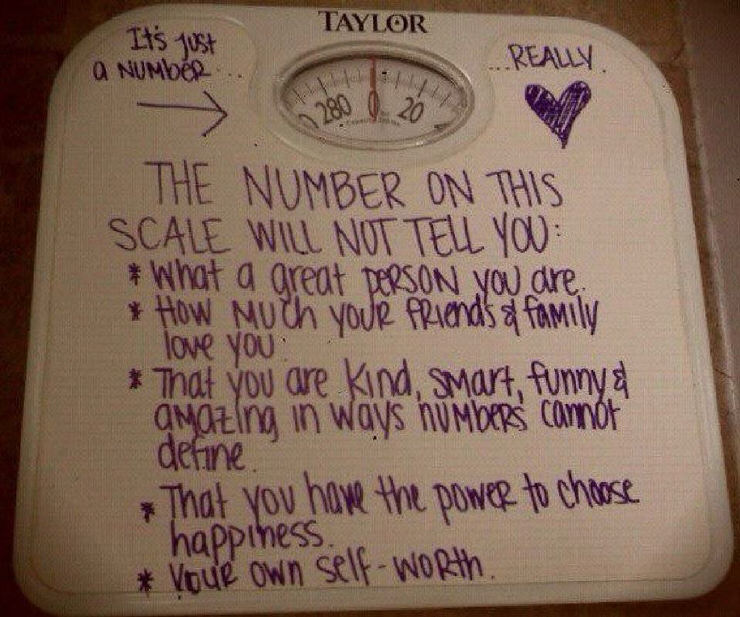 TAYLOR
It's just
a number...
...REALLY.
280 0 20
THE NUMBER ON THIS
SCALE WILL NOT TELL YOU:
* What a great person you are.
* How much your friends & family
love you.
* That you are kind, smart, funny &
amazing in ways numbers cannot
define.
* That you have the power to choose
happiness.
* Your own self-worth.